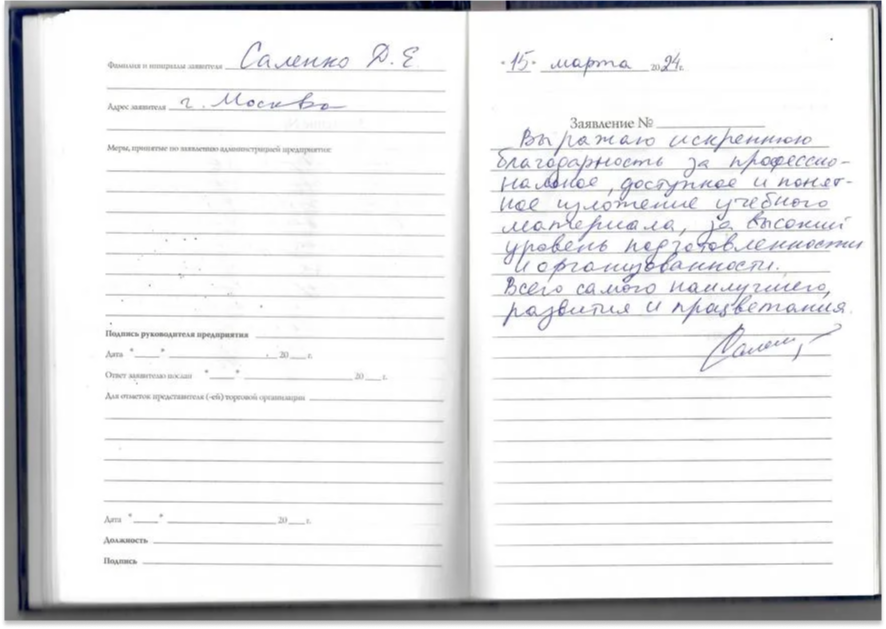 Фамилия и инициалы заявителя Саленко Д. Е.
Адрес заявителя г. Москва
Меры, принятые по заявлению администрацией предприятия:
Подпись руководителя предприятия
Дата "____" ____ 20 ___ г.
Ответ заявителю послан "____" ____ 20 ___ г.
Для отметок представителя (-ей) торговой организации
Дата "____" ____ 20 ___ г.
Должность
Подпись
"15" марта 2024 г.
Заявление № ____
Выражаю искреннюю
благодарность за профессио-
нальное, доступное и понят-
ное изложение учебного
материала, за высокий
уровень подготовленности
и организованности.
Всего самого наилучшего,
развития и процветания.